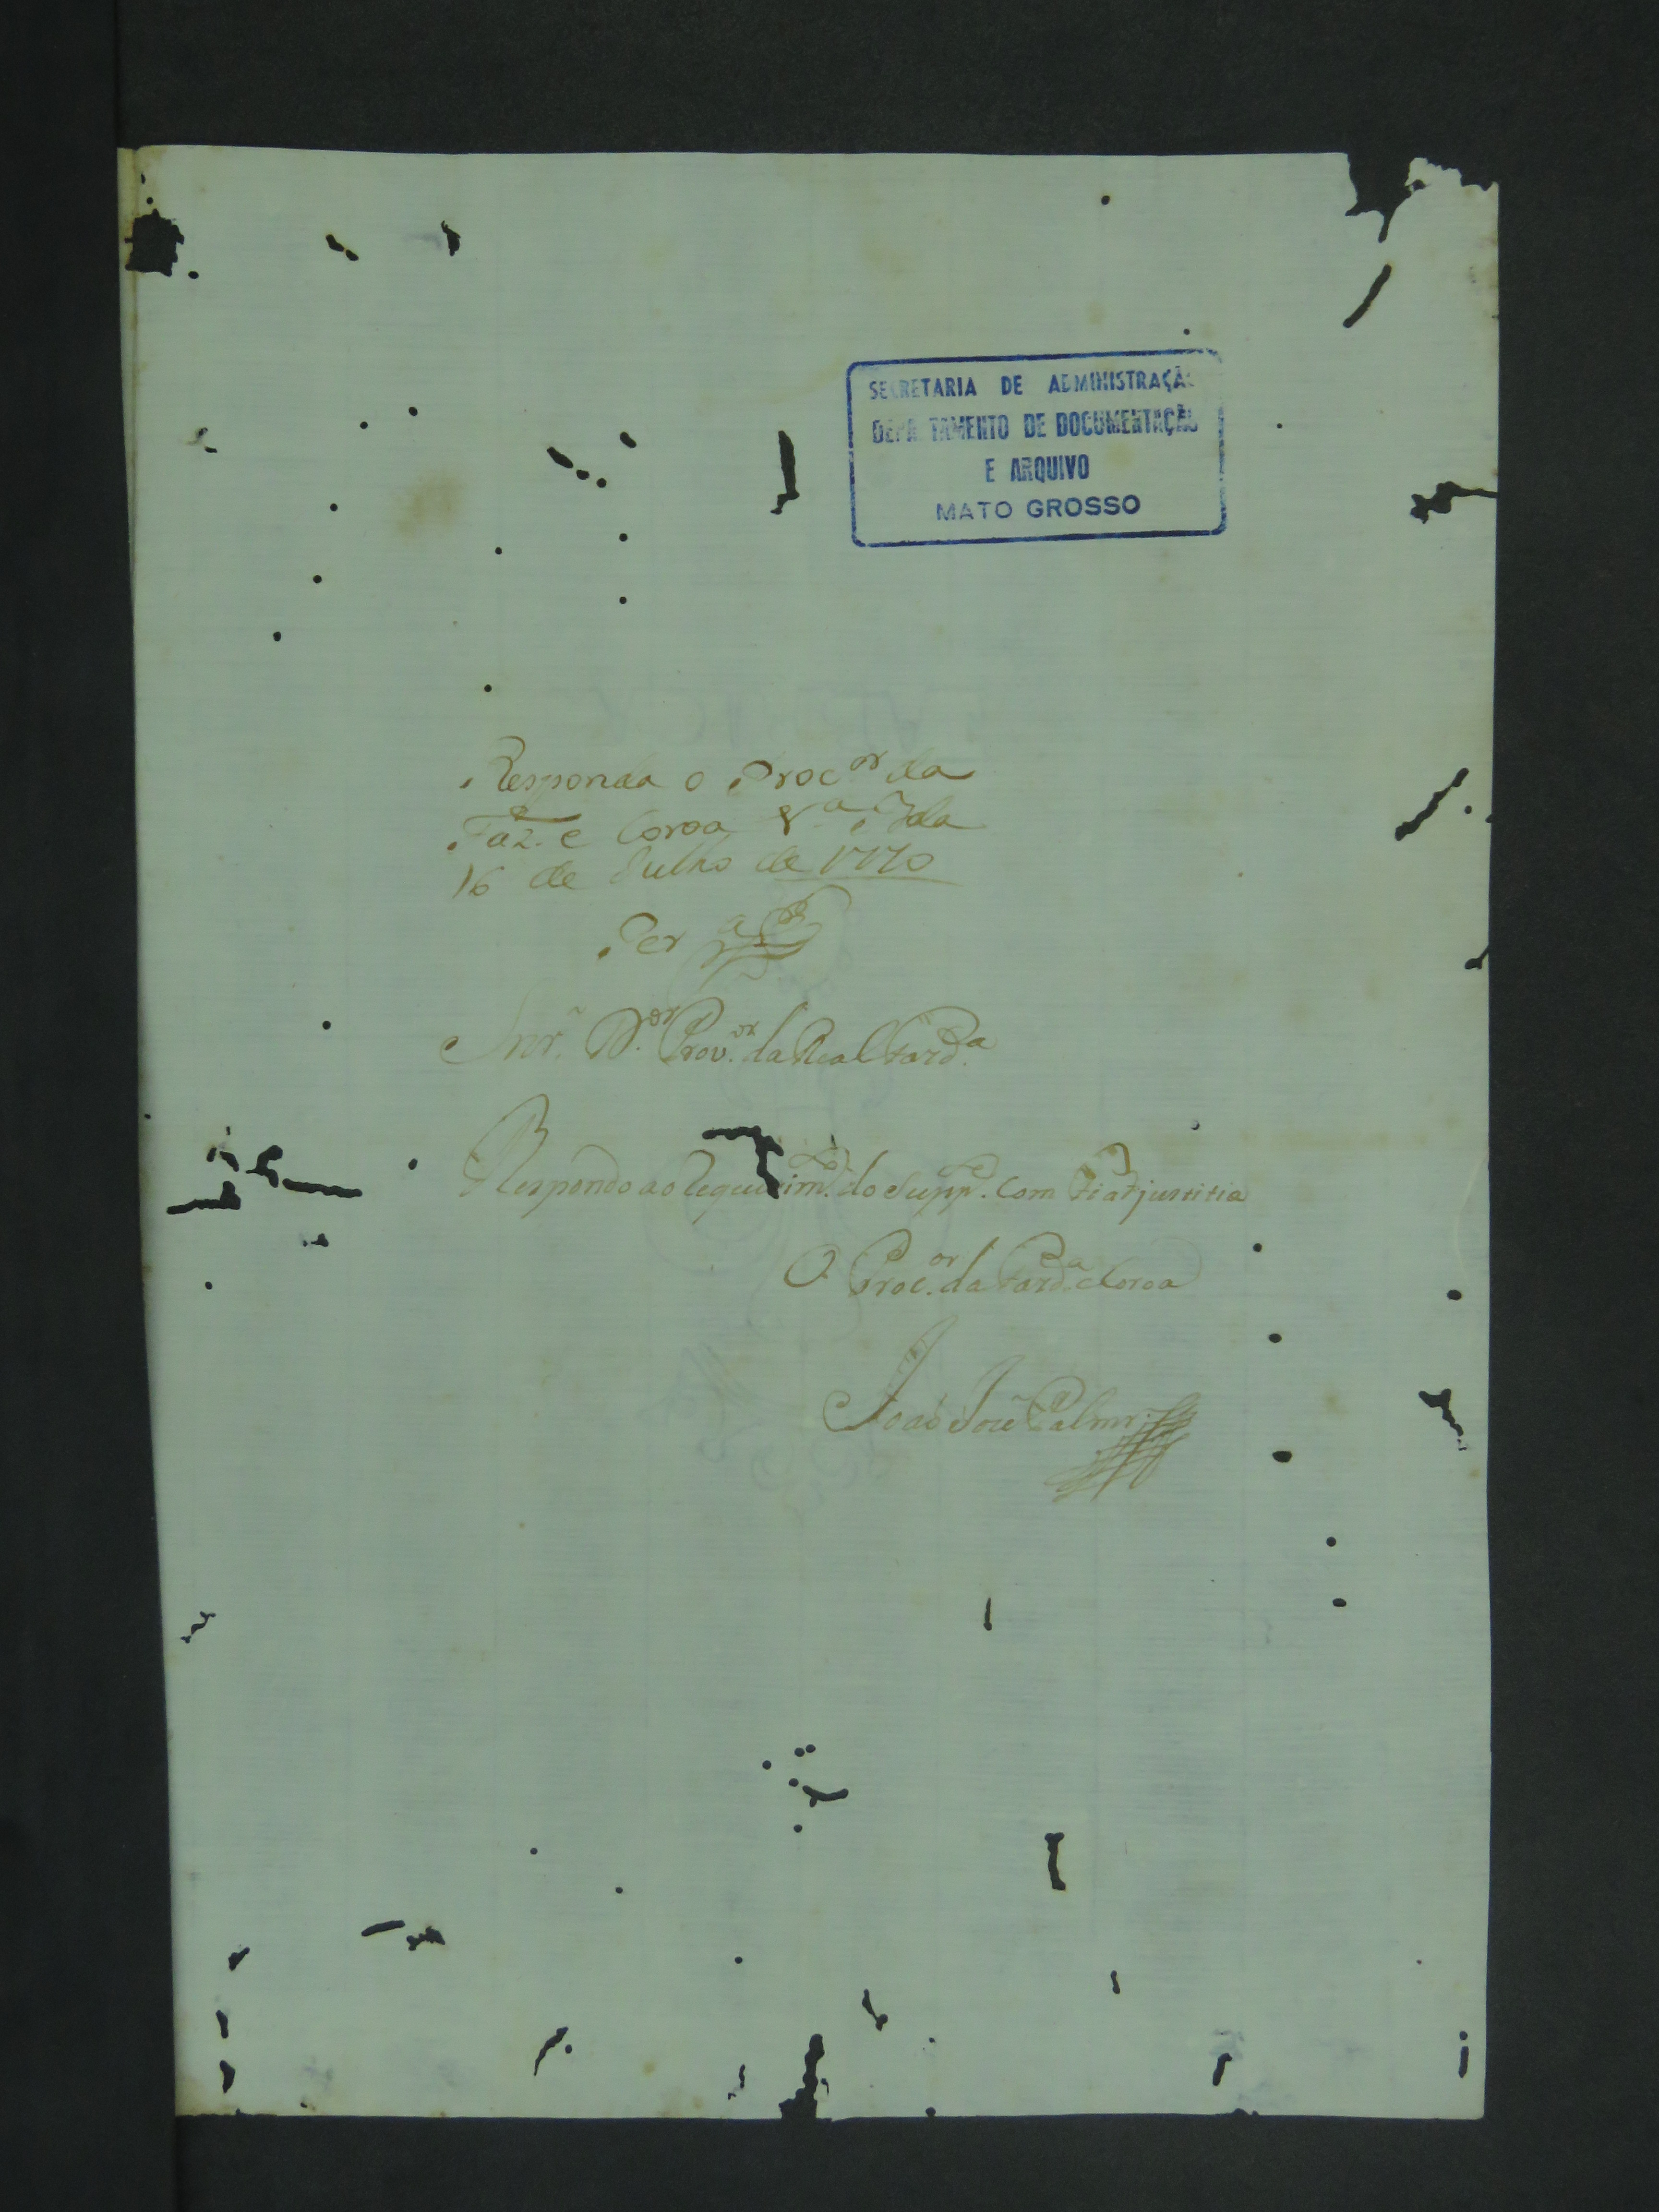 SECRETARIA DE ADMINISTRAÇÃO
DEPARTAMENTO DE DOCUMENTAÇÃO
E ARQUIVO
MATO GROSSO
Responda o Proc.or da
Faz.a e Coroa V.a
16 de Julho de 1770
Snr. D.or Prov.or da Real Fazd.a
Respondo ao Requerim.to do Supp.e com fiat justitia
O Proc.or da Fazd.a e Coroa
João José